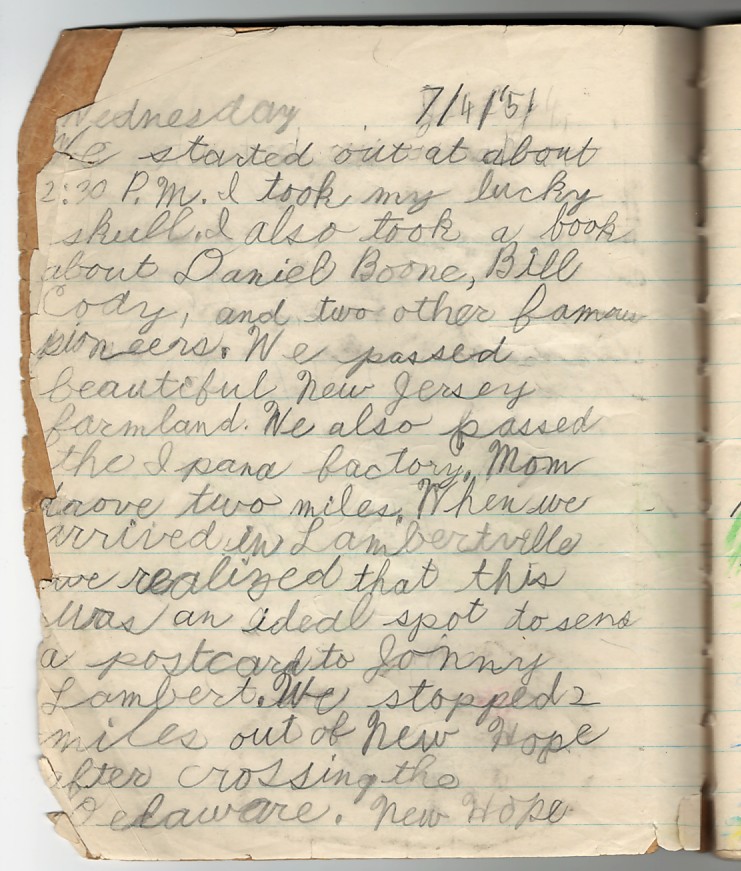 Wednesday 7/4/'51
We started out at about
2:30 P.M. I took my lucky
skull. I also took a book
about Daniel Boone, Bill
Cody, and two other famous
pioneers. We passed
beautiful New Jersey
farmland. We also passed
the Ipana factory. Mom
drove two miles. When we
arrived in Lambertville
we realized that this
was an ideal spot to send
a postcard to Jonny
Lambert. We stopped 2
miles out of New Hope
after crossing the
Delaware. New Hope